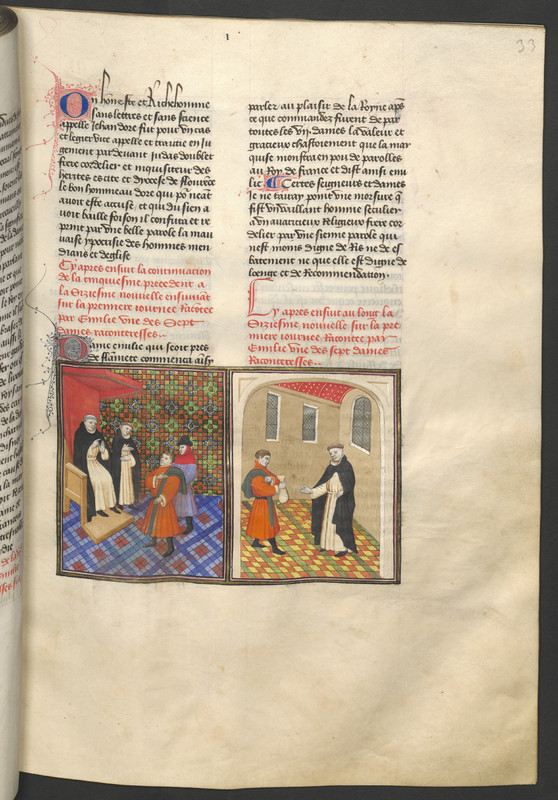 1
33
Un honeste et Riche homme
sans lettres et sans science
appelle Jehan dore fut pour ung cas
et legier vice appelle et traittie en Ju
gement par devant Judas doublet
frere cordelier et inquisiteur des
heretes es cite et dyocese de flourēce
le bon hommeau dore qui po neāt
avoit este accuse, et qui du sien a
voit baille foison il confuta et re
print par une belle parole la mau
vaise ypocrisie des hommes men
dians et deglise
Cy apres ensuit la continuation
de la cinquiesme precedent a
la Siziesme nouvelle ensuivāt
sur la premiere iournee Racōtee
par Emilie une des Sept
dames racōteresses
Dame emilie qui seoit pres
de flāmete commenca aīsy
parler au plaisir de la Royne apēs
ce que commandez furent de par
toutes les vij dames la valeur et
gracieux chastoiement que la mar
quise monstra en pou de parolles
au Roy de france et dist ainsi emi
lie Certes seigneurs et dames
Je ne tairay point une morsure q̄
fist ung vaillant homme seculier
a un avaricieux Religieux frere cor
delier par une sienne parole qui
nest moins digne de Ris ne de es
batement ne que elle est digne de
loenge et de Recommendation
Cy apres ensuit au long la
Siziesme nouvelle sur la pre
miere iournee Racontee par
Emilie une des sept dames
Racōteresses